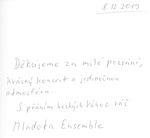 8.12.2019
Děkujeme za milé pozvání,
krásný koncert a jedinečnou
atmosféru.
S přáním hezkých Vánoc váš
Mladota Ensemble